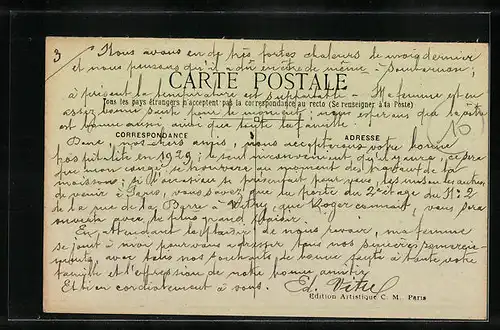 3
Nous avons eu de très fortes chaleurs le mois dernier
et nous pensons qu'il a dû en être de même
CARTE POSTALE
à présent la température est supportable - Ma femme est en
Tous les pays étrangers n'acceptent pas la correspondance au recto (Se renseigner à la Poste)
assez bonne santé pour le moment; nous espérons que la vôtre
est bonne aussi, ainsi que toute la famille.
CORRESPONDANCE
ADRESSE
Donc, mes chers amis, nous accepterons votre bonne
hospitalité en 1929; le seul inconvénient qu'il y aura, ce sera
que mon congé se trouvera au moment des travaux de la
moisson; si l'occasion se présentait pour vous, les uns ou les autres,
de venir à Paris, vous savez que la porte du 2e étage du No 2
de la rue de la à Vitry, que Roger connait, vous sera
ouverte avec le plus grand plaisir.
En attendant le plaisir de nous revoir, ma femme
se joint à moi pour vous adresser tous nos sincères remercie-
ments, avec tous nos souhaits de bonne fête à toute votre
famille et l'expression de notre bonne amitié
Et bien cordialement à vous.
Edition Artistique C. M. Paris